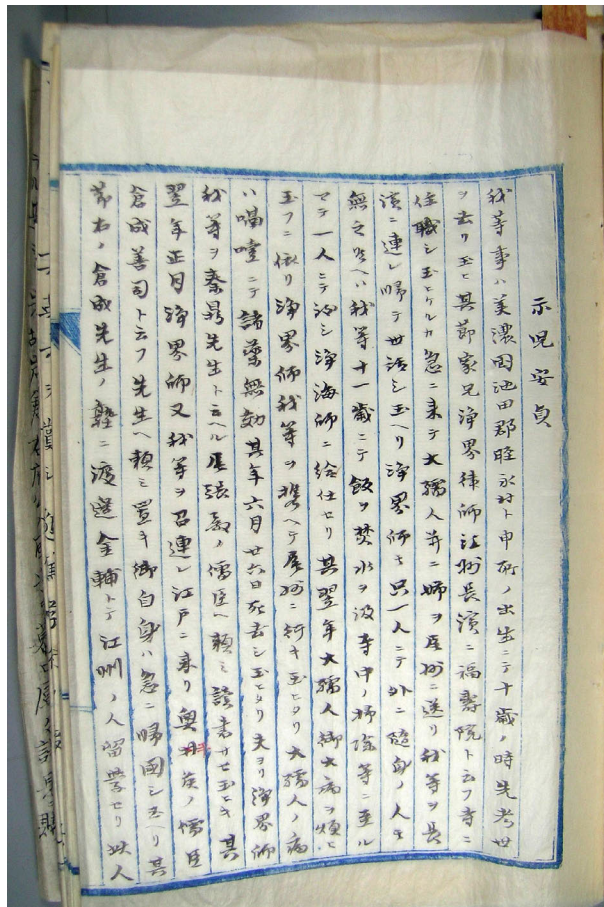 示児安貞
我等事ハ美濃国池田郡 永村ト申所ノ出生ニテ十歳ノ時先考世
ヲ去リ玉ヒ其節家兄浄界律師江州長濱ニ福寿院ト云フ寺ニ
住職シ玉ヒケルカ急ニ来テ大孺人并ニ姉ヲ尾州ニ送リ我等ヲ長
濱ニ連レ帰テ世話シ玉ヘリ浄界師モ只一人ニテ外ニ随身ノ人モ
無之ユヘ我等十一歳ニテ飯ヲ焚水ヲ汲寺中ノ掃除等ニ至ル
マテ一人ニテ致シ浄海師ニ給仕セリ其翌年大孺人御大病ヲ煩ヒ
玉フニ依リ浄界師我等ヲ携ヘテ尾州ニ行キ玉ヒタリ大孺人ノ病
ハ嗝噎ニテ諸薬無効其年六月廿六日死去シ玉ヒタリ夫ヨリ浄界師
我等ヲ秦鼎先生ト云ヘル尾張藩ノ儒臣ヘ頼ミ読書サセ玉ヒキ其
翌年正月浄界師又我等ヲ召連レ江戸ニ来リ奥 侯ノ儒臣
倉成善司ト云フ先生ヘ頼ミ置キ御自身ハ急ニ帰国シ玉ヘリ其
節右ノ倉成先生ノ塾ニ渡邉金輔トテ江州ノ人留学セリ此人